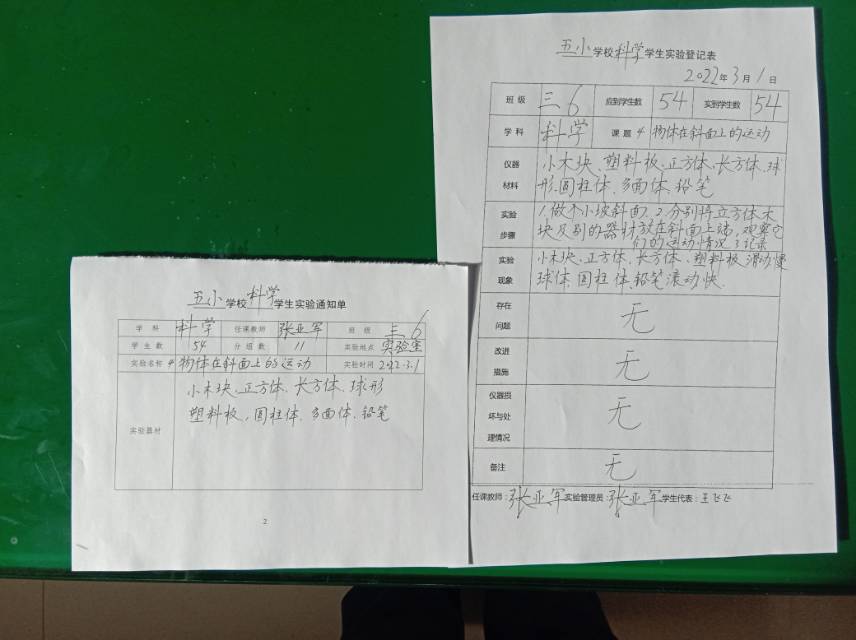 五小学校科学学生实验通知单
学科 科学 任课教师 张亚军 班级 三6
学生数 54 分组数 11 实验地点 实验室
实验名称 4 物体在斜面上的运动 实验时间 2022.3.1
实验器材
小木块、正方体、长方体、球形
塑料板、圆柱体、多面体、铅笔
2
五小学校科学学生实验登记表
2022年3月1日
班级 三6 应到学生数 54 实到学生数 54
学科 科学 课题 4 物体在斜面上的运动
仪器材料
小木块、塑料板、正方体、长方体、球
形、圆柱体、多面体、铅笔
实验步骤
1.做个小坡斜面、2.分别将立方体木
块及别的器材放在斜面上端,观察它
们的运动情况 3记录
实验现象
小木块、正方体、长方体、塑料板滑动慢
球体、圆柱体、铅笔滚动快.
存在问题 无
改进措施 无
仪器损坏与处理情况 无
备注 无
任课教师:张亚军 实验管理员:张亚军 学生代表:王飞飞